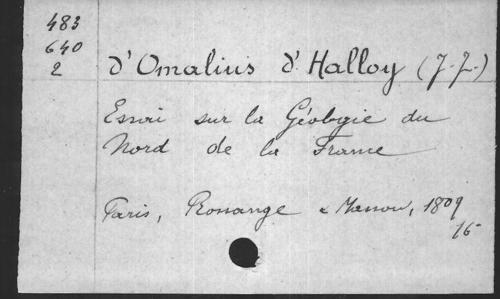 483
640
2
d'Omalius d'Halloy (J. J.)
Essai sur la Géologie du
Nord de la France
Paris, Bossange & Masson, 1809
16-